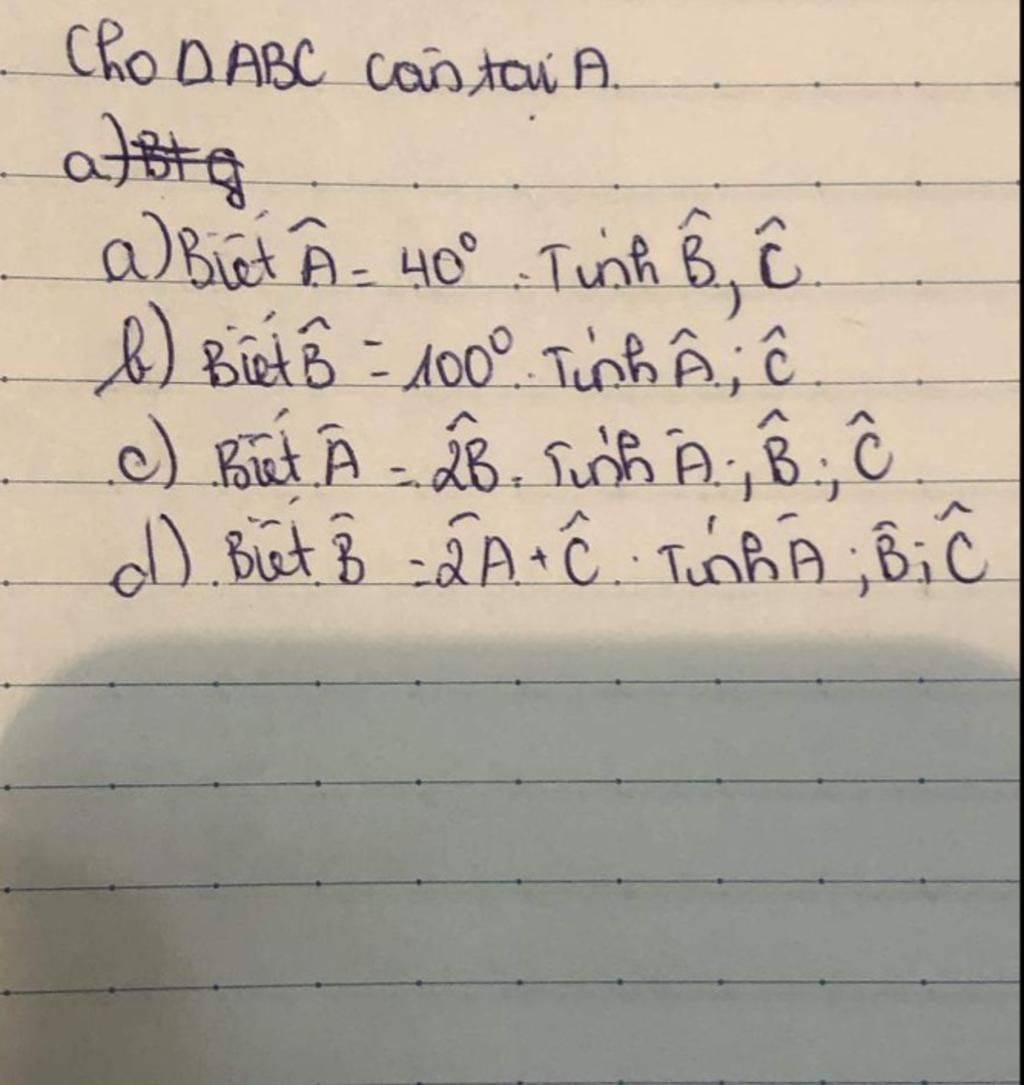 Cho ΔABC cân tại A.
a) Btg
a) Biết Â = 40° . Tính B̂, Ĉ.
b) Biết B̂ = 100° . Tính Â ; Ĉ.
c) Biết Â = 2B̂. Tính Â ; B̂ ; Ĉ
d) Biết B̂ = 2Â + Ĉ . Tính Â ; B̂ ; Ĉ